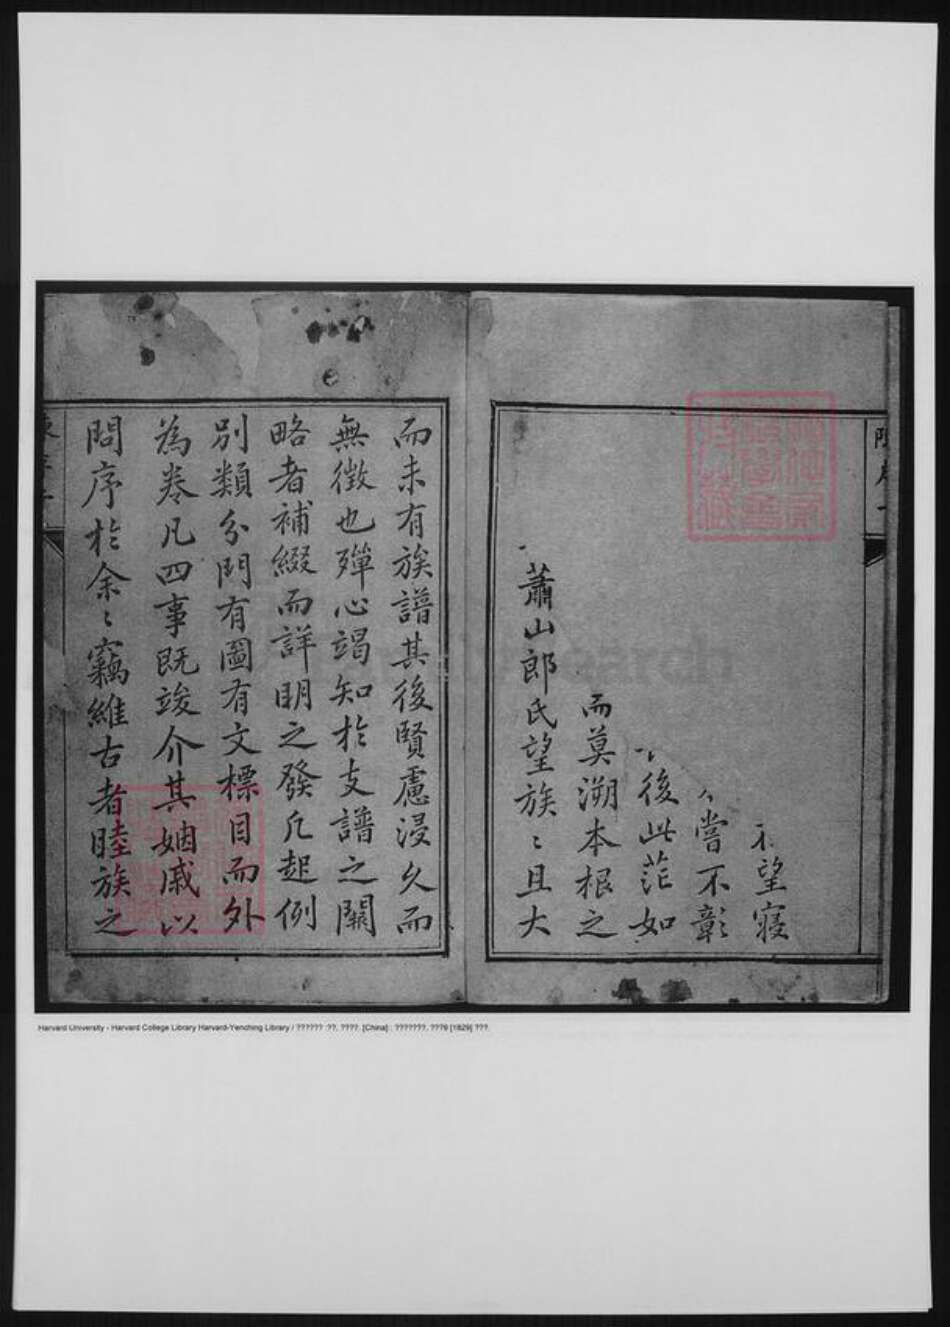 望寢
嘗不彰
後此茫如
而莫溯本根之
蕭山郎氏望族〻且大
而未有族譜其後賢慮浸久而
無徵也殫心竭知於支譜之闕
略者補綴而詳明之發凡起例
別類分門有圖有文標目而外
為卷凡四事既竣介其姻戚以
問序於余〻竊維古者睦族之
Harvard University - Harvard College Library Harvard-Yenching Library / ?????? :??, ????. [China] : ???????, ???9 [1829] ???.